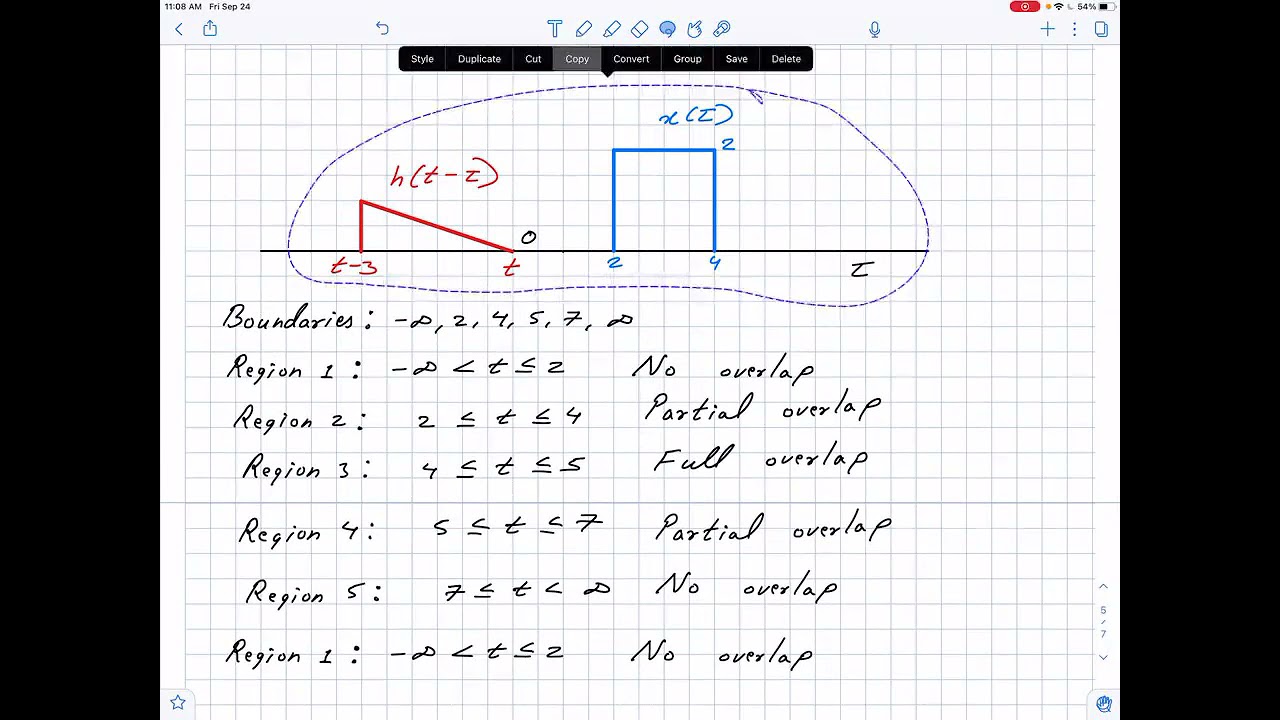 11:08 AM Fri Sep 24 54%
T
Style Duplicate Cut Copy Convert Group Save Delete
x(τ)
2
h(t-τ)
0
t-3 t 2 4 τ
Boundaries: -∞, 2, 4, 5, 7, ∞
Region 1: -∞ < t ≤ 2 No overlap
Region 2: 2 ≤ t ≤ 4 Partial overlap
Region 3: 4 ≤ t ≤ 5 Full overlap
Region 4: 5 ≤ t ≤ 7 Partial overlap
Region 5: 7 ≤ t < ∞ No overlap
5
7
Region 1: -∞ < t ≤ 2 No overlap